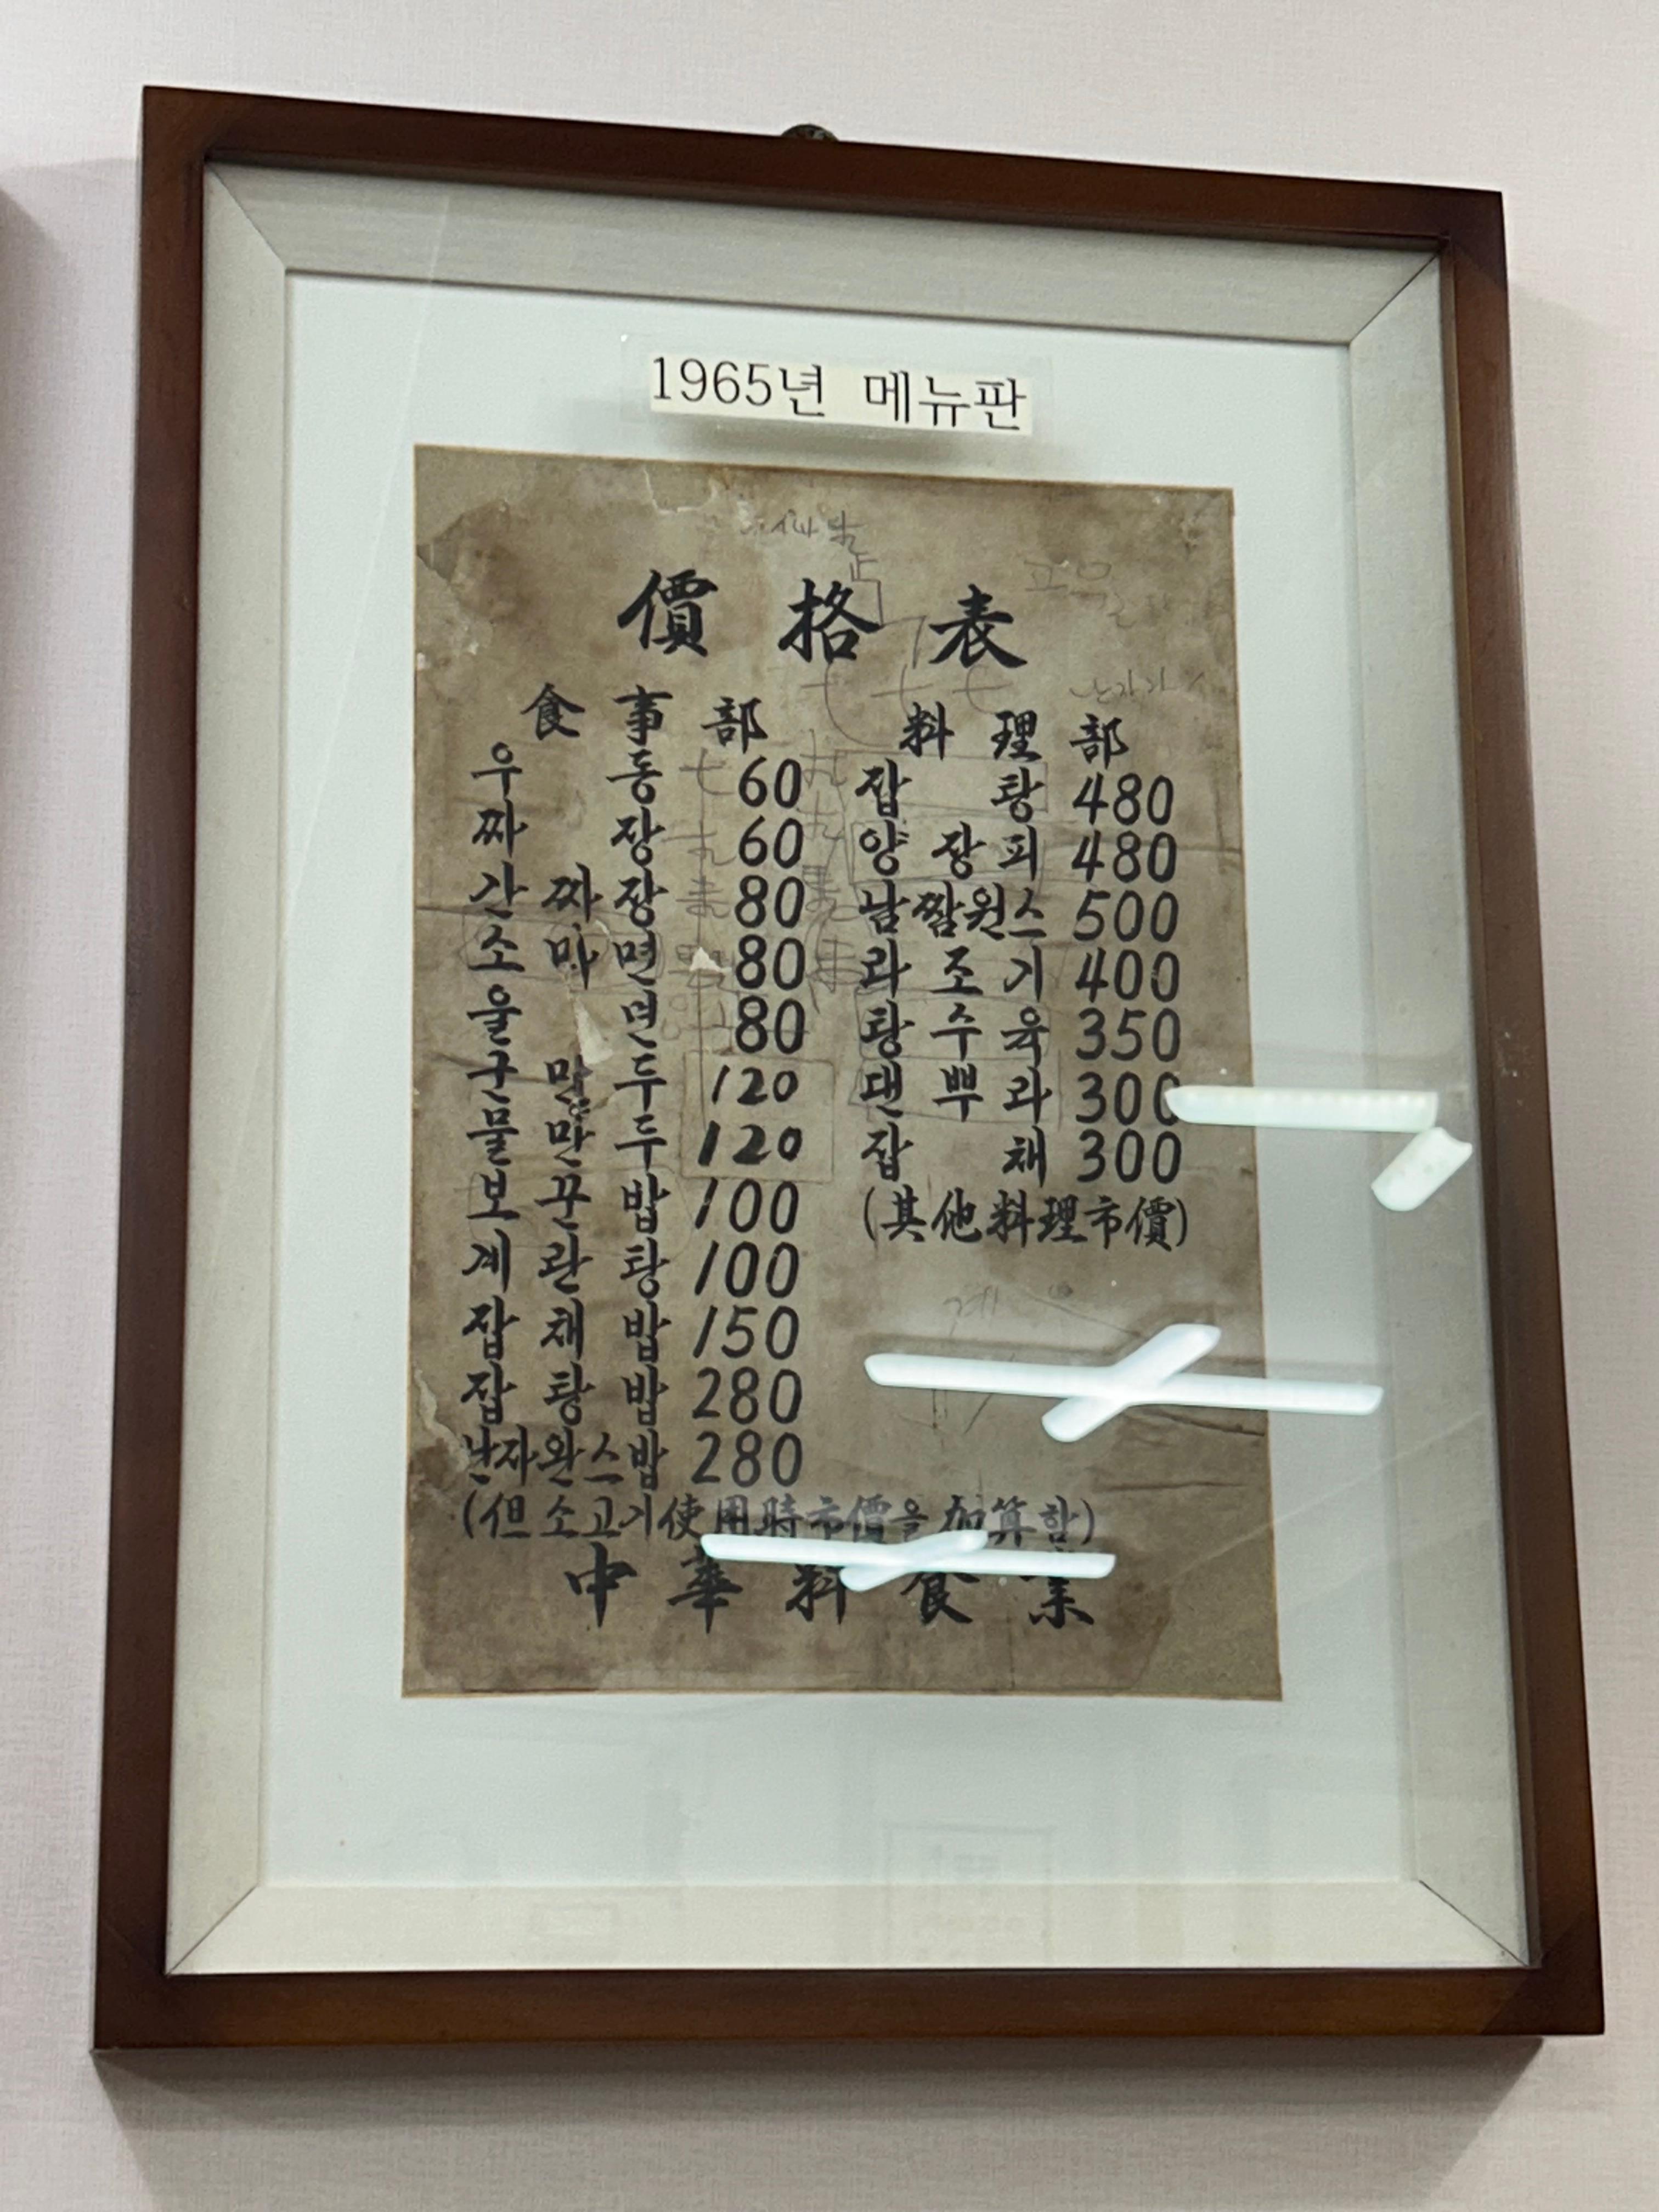 1965년 메뉴판
價格表
食事部
우동 60
짜장 60
간짜장 80
소마면 80
울면 80
군만두 120
물만두 120
보꾼밥 100
계란탕 100
잡채밥 150
잡탕밥 280
난자완스밥 280
(但 소고기 使用時 市價을 加算함)
料理部
잡탕 480
양장피 480
남짬원스 500
라조기 400
탕수육 350
댄뿌라 300
잡채 300
(其他料理市價)
中華料食業